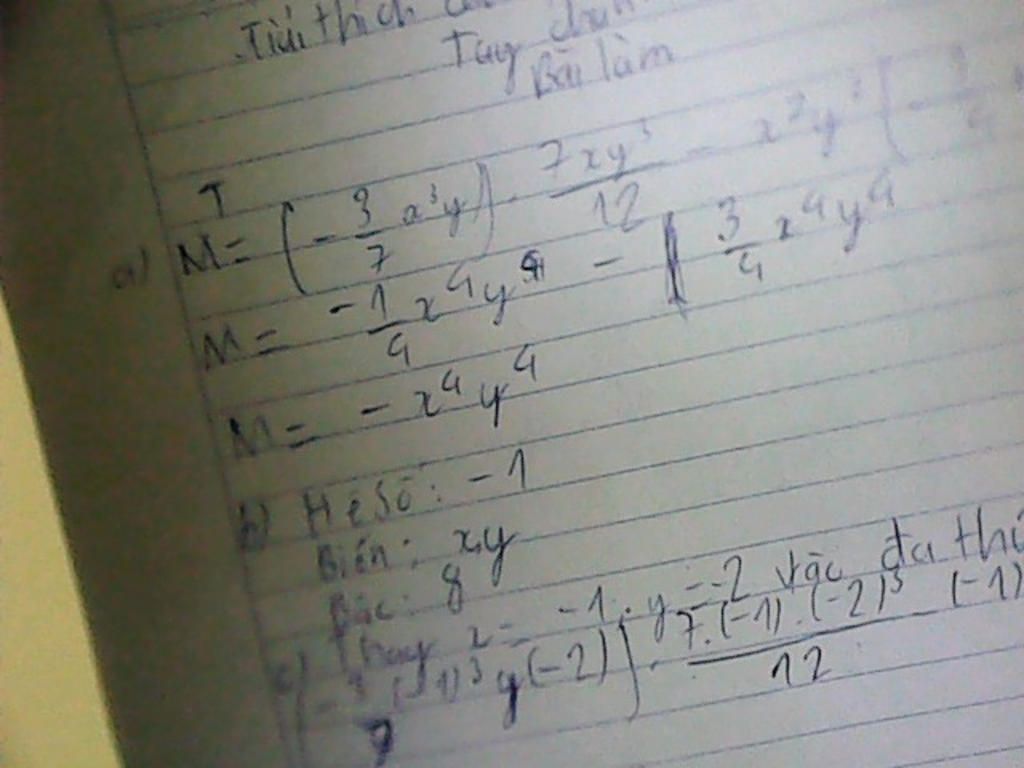 thích
Tay
Bài làm
a) M = (-3/7 x³y) . 7xy³/12 - x²y³(-3/4
M = -1/4 x⁴y⁴ - 3/4 x⁴y⁴
M = - x⁴y⁴
b) Hệ Số: -1
Biến: x,y
Bậc: 8
c) Thay x = -1; y = -2 vào đa thứ
(-3/7 (-1)³ y(-2)) . 7.(-1).(-2)³/12 (-1)